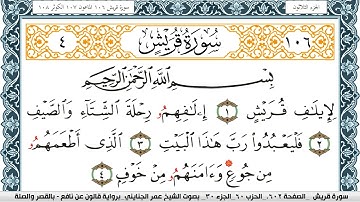 الجزء الثلاثون سورة قريش ١٠٦ الماعون ١٠٧ الكوثر ١٠٨
١٠٦ سُورَةُ قُرَيْشٍ ٤
بِسْمِ اللَّهِ الرَّحْمَٰنِ الرَّحِيمِ
لِإِيلَٰفِ قُرَيْشٍ ١ إِۦلَٰفِهِمُۥ رِحْلَةَ الشِّتَآءِ وَالصَّيْفِ
٢ فَلْيَعْبُدُوا رَبَّ هَٰذَا الْبَيْتِ ٣ الَّذِي أَطْعَمَهُمُۥ
مِن جُوعٍ وَءَامَنَهُمُۥ مِنْ خَوْفٍ ٤
سورة قريش . الصفحة ٦٠٢. الحزب ٦٠ الجزء ٣٠ . بصوت الشيخ عمر الجنايني . برواية قالون عن نافع - بالقصر والصلة